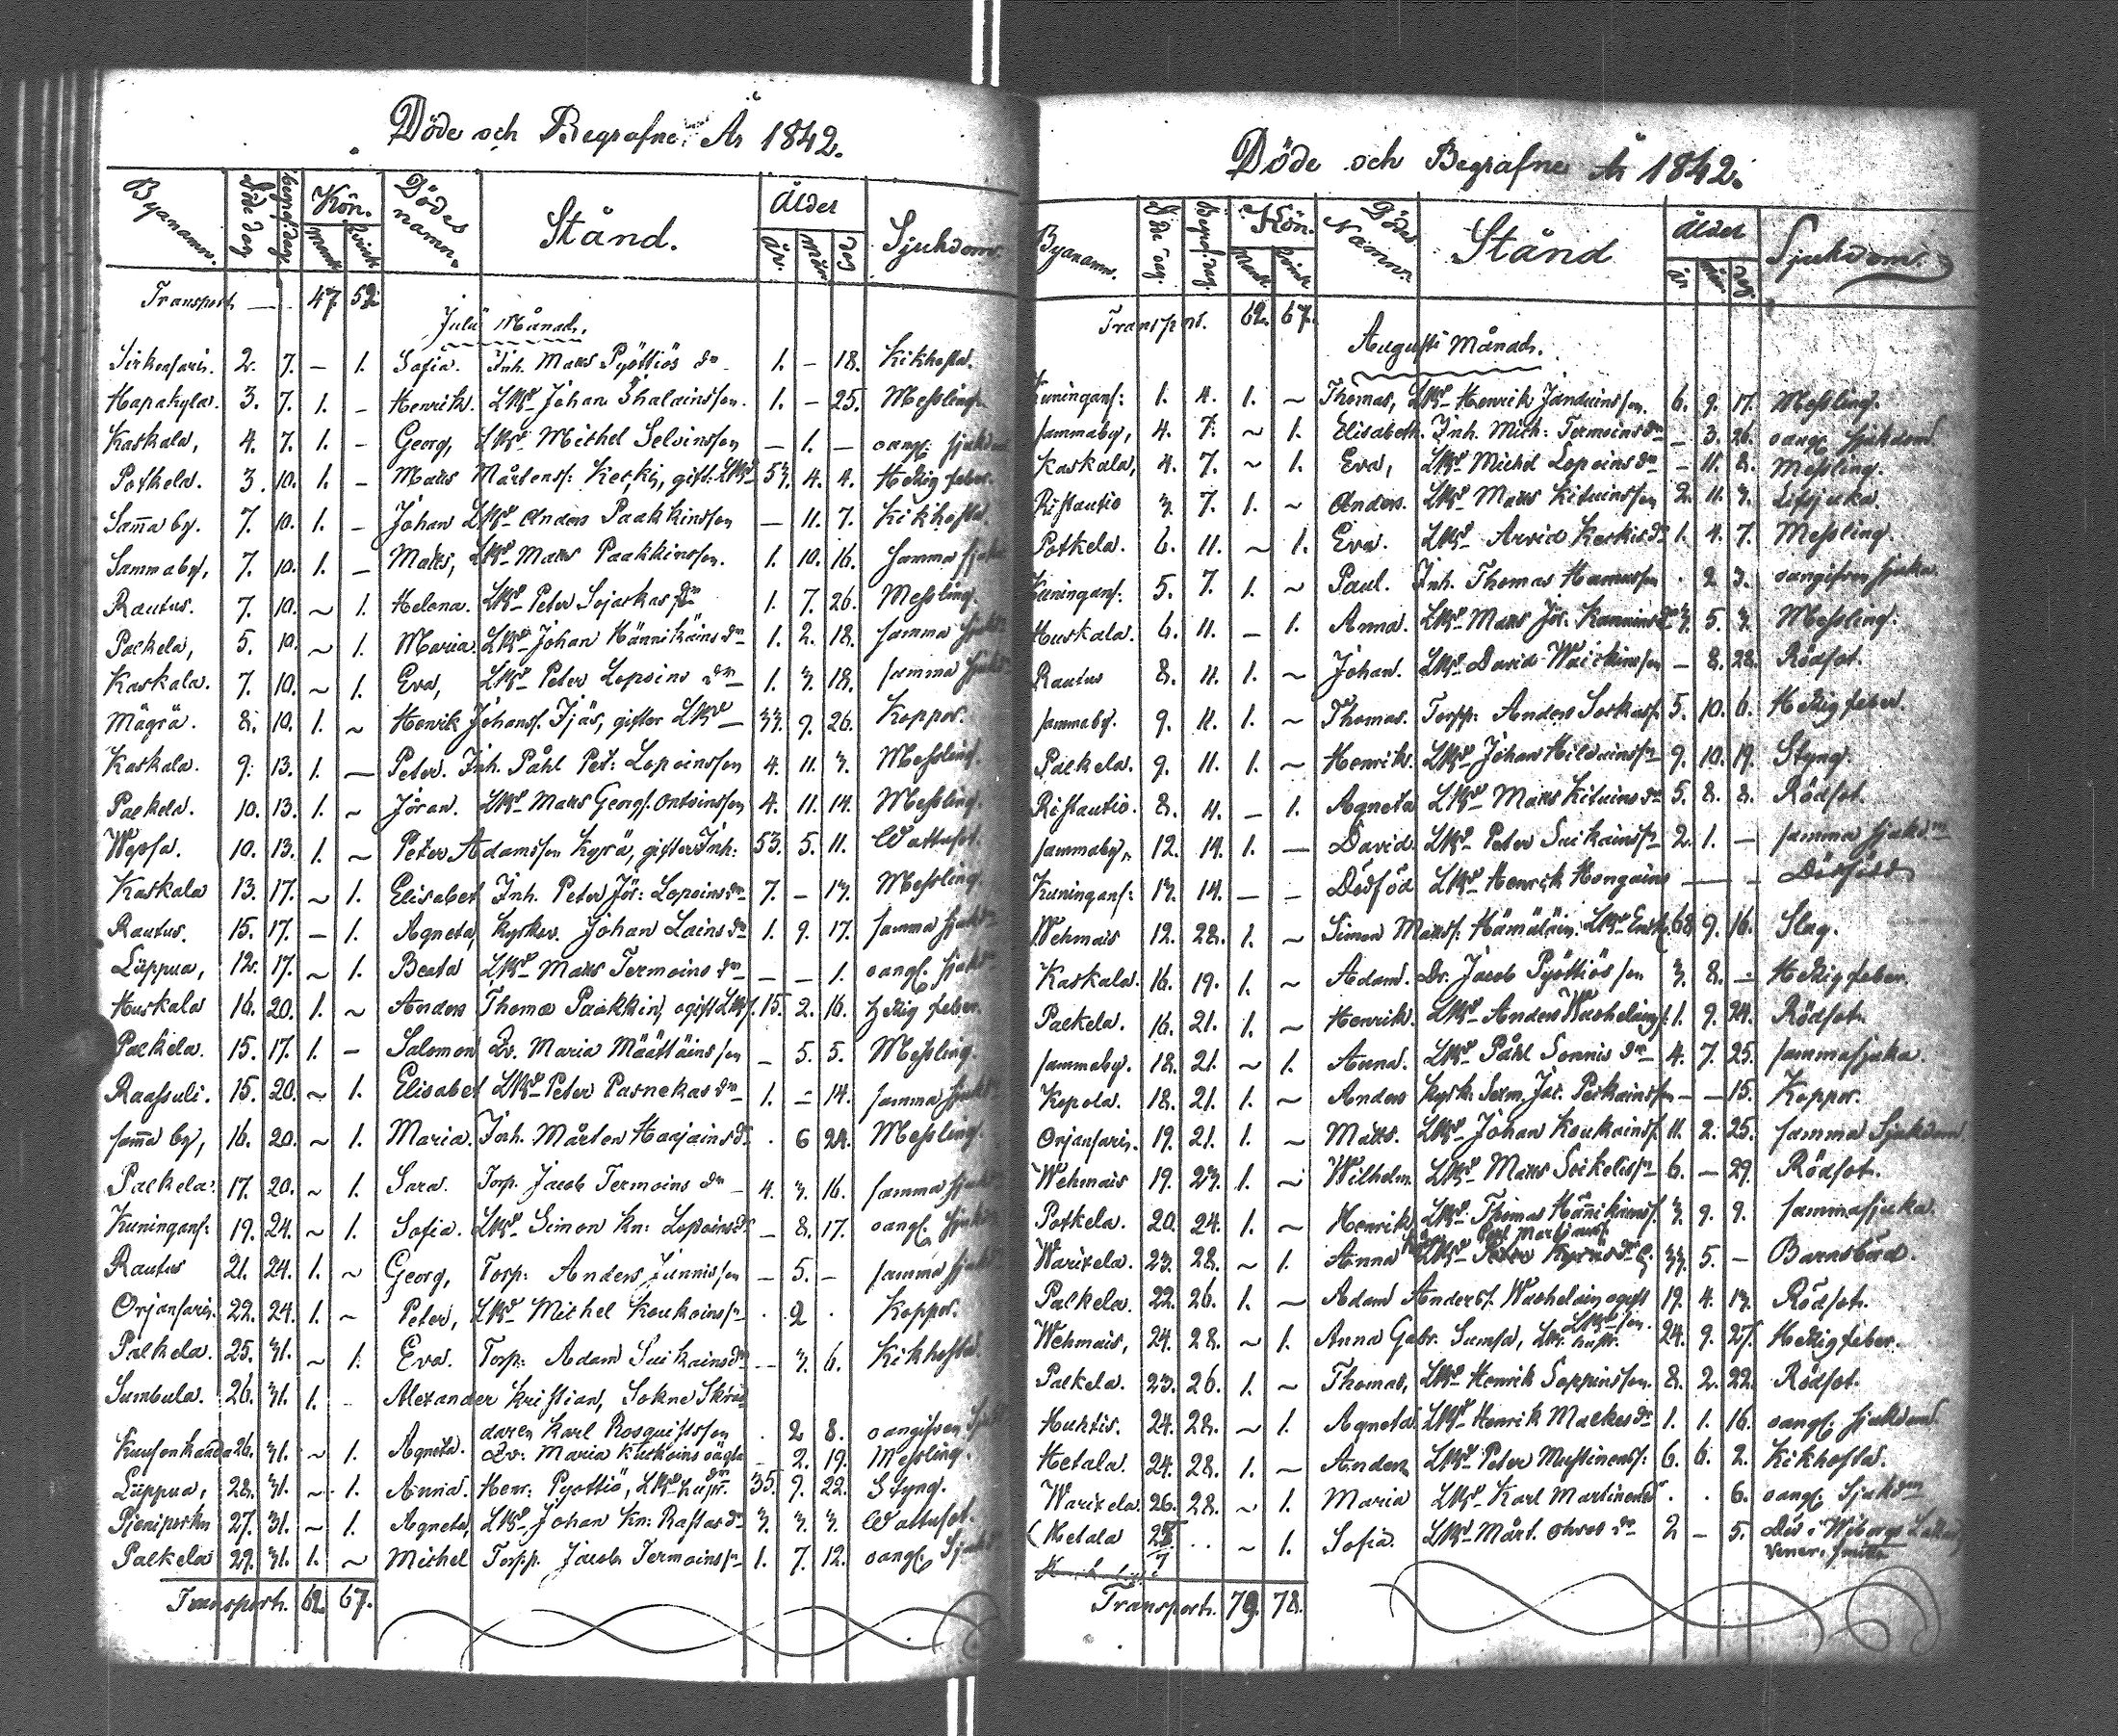 Döde och Begrafne År 1842.
Byanamn. Döde dag begraf: dag Kön. Mank. Qvink. Dödes namn. Stånd. Ålder år. Mån. dag Sjukdom.
Transport — 47 52
Julii Månad.
Sirkensaari. 2. 7. – 1. Sofia. Inh. Matts Pyöttiös dr 1. – 18. Kikhosta.
Hapakylä. 3. 7. 1. – Henrik. LBd Johan Ihalainsson. 1. – 25. Messling.
Kaskala, 4. 7. 1. – Georg, LBd Michel Selvinsson – 1. – oangf: sjukdom
Potkela. 3. 10. 1. – Matts Mårtens: Keski, gift LBd 53. 4. 4. Hetzig feber.
Samma by. 7. 10. 1. – Johan LBd Anders Paakkinsson – 11. 7. Kikhosta.
Sammaby, 7. 10. 1. – Matts, LBd Matts Paakkinsson. 1. 10. 16. samma sjuka
Rautus. 7. 10. ~ 1. Helena. LBd Peter 1. 7. 26. Messling.
Palkela, 5. 10. ~ 1. Maria LBd Johan Hännikäins dr 1. 2. 18. samma
Kaskala. 7. 10. ~ 1. Eva, LBd Peter Lopoins dr 1. 3. 18. samma
Mägrä. 8. 10. 1. ~ Henrik Johans. Ijäs, gifter LBd 33. 9. 26. Koppor.
Kaskala. 9. 13. 1. — Peter. Inh. Påhl Pet: Lopoinsson 4. 11. 3. Messling.
Palkela. 10. 13. 1. ~ Jöran. LBd Matts Georgs. Ontoinsson 4. 11. 14. Messling.
Wepsa. 10. 13. 1. ~ Peter Adamsson Kyrä, gifter Inh: 53. 5. 11. Wattusot.
Kaskala 13. 17. ~ 1. Elisabet Inh. Peter Jör: Lopoins dr 7. – 13. Messling.
Rautus. 15. 17. – 1. Agneta, Kyrkov. Johan Lains dr 1. 9. 17. samma
Lippua, 12. 17. ~ 1. Beata LBd Matts Termoins dr – – 1. oangf. sjukd
Huskala 16. 20. 1. ~ Anders Thoms Paakkin, ogift LBs. 15. 2. 16. hetzig feber.
Palkela. 15. 17. 1. – Salomon Qv. Maria Määttäinsson – 5. 5. Messling.
Raassuli. 15. 20. ~ 1. Elisabet LBd Peter Parnekas dr 1. – 14. samma
samma by, 16. 20. ~ 1. Maria. Inh. Mårten Harjains dr . 6 24. Messling.
Palkela. 17. 20. ~ 1. Sara. Torp. Jacob Termoins dr 4. 3. 16. samma
Kuningans: 19. 24. ~ 1. Sofia. LBd Simon Kn: Lopoins dr – 8. 17. oangf.
Rautus 21. 24. 1. ~ Georg, Torp: Anders Junnisson – 5. – samma
Orjansaari. 22. 24. 1. ~ Peter, LBd Michel Koukoinsson . 2 . Koppor.
Palkela. 25. 31. ~ 1. Eva. Torp: Adam Suikains dr – 3. 6. Kikhosta.
Sumbula. 26. 31. 1. – Alexander Kristian, Sokne Skräd
daren Karl Rosquistsson . 2 8. oangifven
26. 31. ~ 1. Agneta. Qv: Maria Kurkoins oägta dr – 2. 19. Messling.
Lippua, 28. 31. ~ 1. Anna. Henr: Pyöttiö, LBd hustr. 35. 9. 22. Styng.
27. 31. ~ 1. Agneta, LBd Johan Kn: Rastas dr 3. 3. 3. Wattusot.
Palkela 29. 31. 1. ~ Michel Torpp. Jacob Termoinsson 1. 7. 12. oangf.
Transport. 62. 67.
Döde och Begrafne År 1842.
Byanamn. Döde dag. Begraf: dag. Kön. Mank. Qvink. Dödes Namn. Stånd Ålder år Mån. dag. Sjukdom.
Transport. 62. 67.
Augusti Månad.
Kuningans: 1. 4. 1. ~ Thomas, LBd Henrik Janduinsson. 6. 9. 17. Messling.
sammaby, 4. 7. ~ 1. Elisabeth. Inh. Mich: Termoins dr – 3. 26. oangf. sjukdom
Kaskala, 4. 7. ~ 1. Eva, LBd Michel Lopoins dr – 11. 8. Messling.
Ristautio 3. 7. 1. ~ Anders. LBd Matts Kituinsson 2. 11. 3.
Potkela. 6. 11. ~ 1. Eva. LBd Arvid Keskis dr 1. 4. 7. Messling.
Kuningans: 5. 7. 1. ~ Paul. Inh. Thomas . 2 3. oangifven sjuka.
Huskala. 6. 11. – 1. Anna. LBd Matts Jör. 3. 5. 3. Messling.
Rautus 8. 11. 1. ~ Johan. LBd David – 8. 28. Rödsot.
sammaby. 9. 11. 1. ~ Thomas. Torpp. Anders 5. 10. 6. Hetzig feber.
Palkela. 9. 11. 1. ~ Henrik. LBd Johan Hilduinsson 9. 10. 19. Styng.
Ristautio. 8. 11. – 1. Agneta LBd Matts Kituins dr 5. 8. 8. Rödsot.
sammaby, 12. 14. 1. — David LBd Peter Suikainsson 2. 1. – samma sjukdm
Kuningans: 13. 14. – – Dödföd LBd Henrik Hongains — – Dödfödd
Wehmais 12. 28. 1. ~ Simon Matss. Hämäläin. LBd Enkl. 68. 9. 16. Slag.
Kaskala. 16. 19. 1. ~ Adam. Dr. Jacob Pyöttiösson 3. 8. – Hetzig feber.
Palkela. 16. 21. 1. ~ Henrik. LBd Anders 1. 9. 24. Rödsot.
sammaby. 18. 21. ~ 1. Anna. LBd Påhl Sonnis dr 4. 7. 25. sammasjuka.
Kopola. 18. 21. 1. ~ Anders Kyrk. Jac. – – 15. Koppor.
Orjansaari. 19. 21. 1. ~ Matts. LBd Johan Koukoinss. 11. 2. 25. samma Sjukdom.
Wehmais 19. 23. 1. ~ Wilhelm. LBd Matts 6. – 29. Rödsot.
Potkela. 20. 24. 1. ~ Henrik LBd Thomas Hännikäins. 3. 9. 9. sammasjuka.
Warixela. 23. 28. ~ 1. Anna 33. 5. – Barnsbörd.
Palkela. 22. 26. 1. ~ Adam Anders. ogift 19. 4. 13. Rödsot.
LBd son.
Wehmais, 24. 28. ~ 1. Anna Gabr. LBd hustr. 24. 9. 27. Hetzig feber.
Palkela. 23. 26. 1. ~ Thomas, LBd Henrik Soppinsson. 8. 2. 22. Rödsot.
Huhtis. 24. 28. ~ 1. Agneta LBd Henrik Malkes dr 1. 1. 16. oangf. sjukdom.
Hetala. 24. 28. 1. — Anders LBd Peter 6. 6. 2. Kikhosta.
Warixela. 26. 28. ~ 1. Maria LBd Karl . . 6. oangf. Sjukdm
Hetala 28/7 . . ~ 1. Sofia. LBd Mårt. dr 2 – 5. Död i Wiborgs
Vener. smitta
Transport. 79. 78.